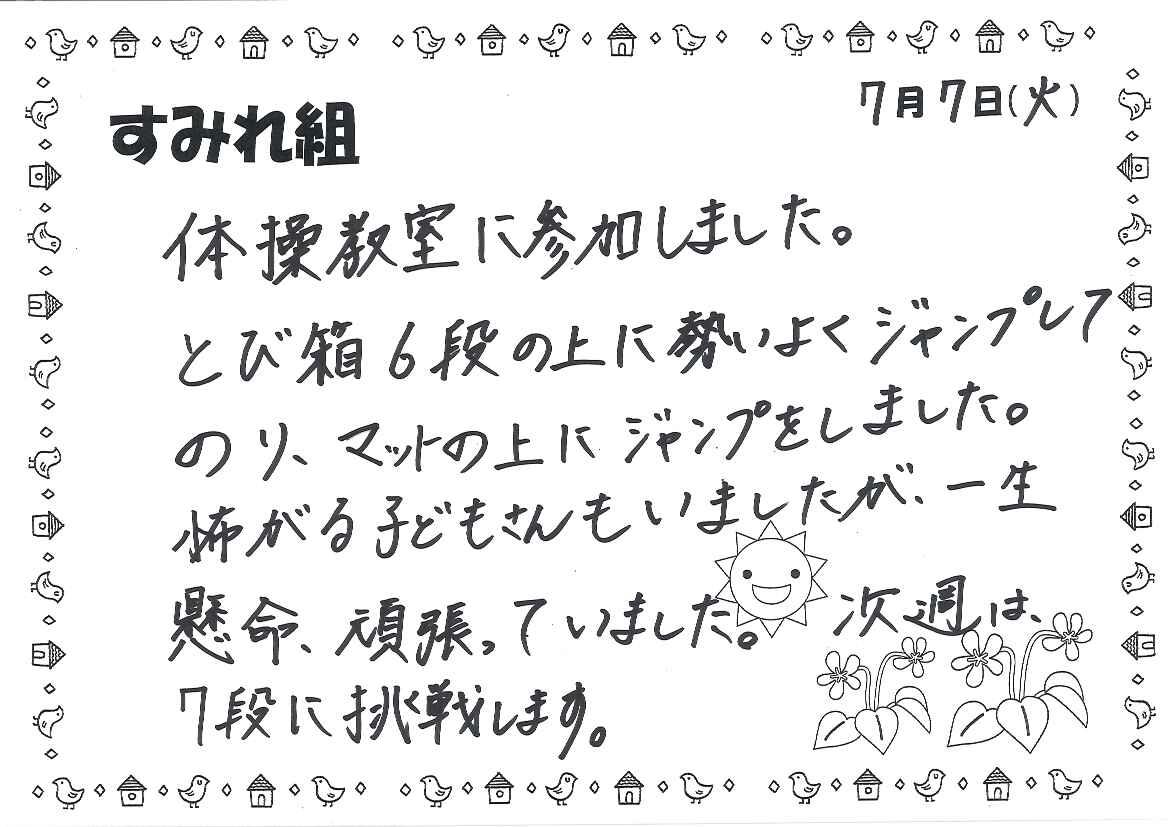 7月7日(火)
すみれ組
体操教室に参加しました。
とび箱6段の上に勢いよくジャンプして
のり、マットの上にジャンプをしました。
怖がる子どもさんもいましたが、一生
懸命、頑張っていました。次週は、
7段に挑戦します。